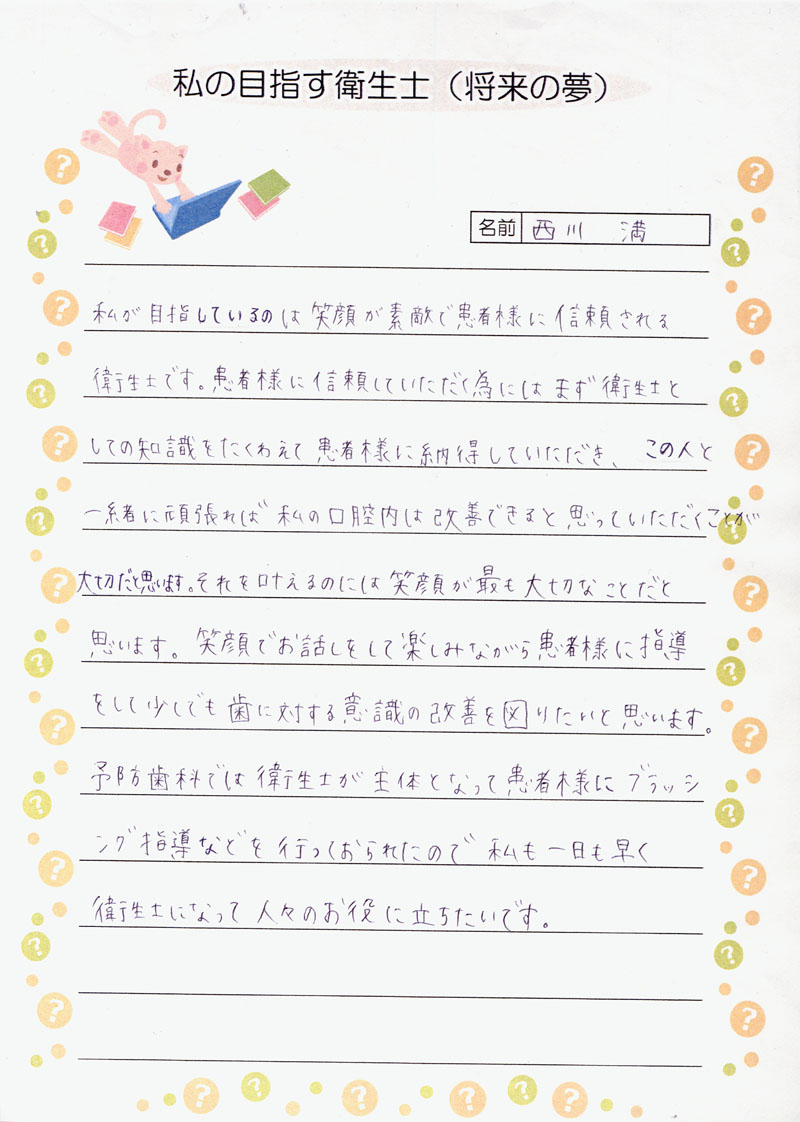 私の目指す衛生士（将来の夢）
名前 西川 満
私が目指しているのは笑顔が素敵で患者様に信頼される
衛生士です。患者様に信頼していただく為にはまず衛生士と
しての知識をたくわえて患者様に納得していただき、この人と
一緒に頑張れば私の口腔内は改善できると思っていただくことが
大切だと思います。それを叶えるのには笑顔が最も大切なことだと
思います。笑顔でお話しをして楽しみながら患者様に指導
をして少しでも歯に対する意識の改善を図りたいと思います。
予防歯科では衛生士が主体となって患者様にブラッシ
ング指導などを行っておられたので私も一日も早く
衛生士になって人々のお役に立ちたいです。